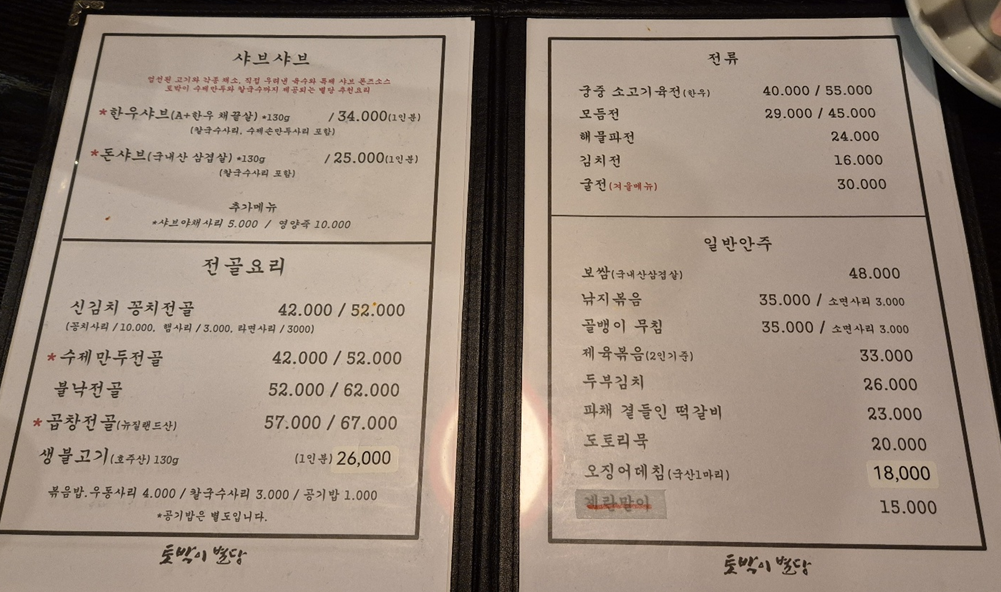 샤브샤브
엄선된 고기와 각종 채소, 직접 우려낸 육수와 특제 샤브 폰즈소스
토박이 수제만두와 칼국수까지 제공되는 별당 추천요리
*한우샤브(A+한우 채끝살) *130g / 34.000(1인분)
(칼국수사리, 수제손만두사리 포함)
*돈샤브(국내산 삼겹살) *130g / 25.000(1인분)
(칼국수사리 포함)
추가메뉴
*샤브야채사리 5.000 / 영양죽 10.000
전골요리
신김치 꽁치전골 42.000 / 52.000
(꽁치사리 / 10.000, 햄사리 / 3.000, 라면사리 / 3000)
*수제만두전골 42.000 / 52.000
불낙전골 52.000 / 62.000
*곱창전골(뉴질랜드산) 57.000 / 67.000
생불고기(호주산) 130g (1인분) 26,000
볶음밥.우동사리 4.000 / 칼국수사리 3.000 / 공기밥 1.000
*공기밥은 별도입니다.
토박이 별당
전류
궁중 소고기육전(한우) 40.000 / 55.000
모듬전 29.000 / 45.000
해물파전 24.000
김치전 16.000
굴전(겨울메뉴) 30.000
일반안주
보쌈(국내산삼겹살) 48.000
낙지볶음 35.000 / 소면사리 3.000
골뱅이 무침 35.000 / 소면사리 3.000
제육볶음(2인기준) 33.000
두부김치 26.000
파채 곁들인 떡갈비 23.000
도토리묵 20.000
오징어데침(국산1마리) 18,000
계란말이 15.000
토박이 별당